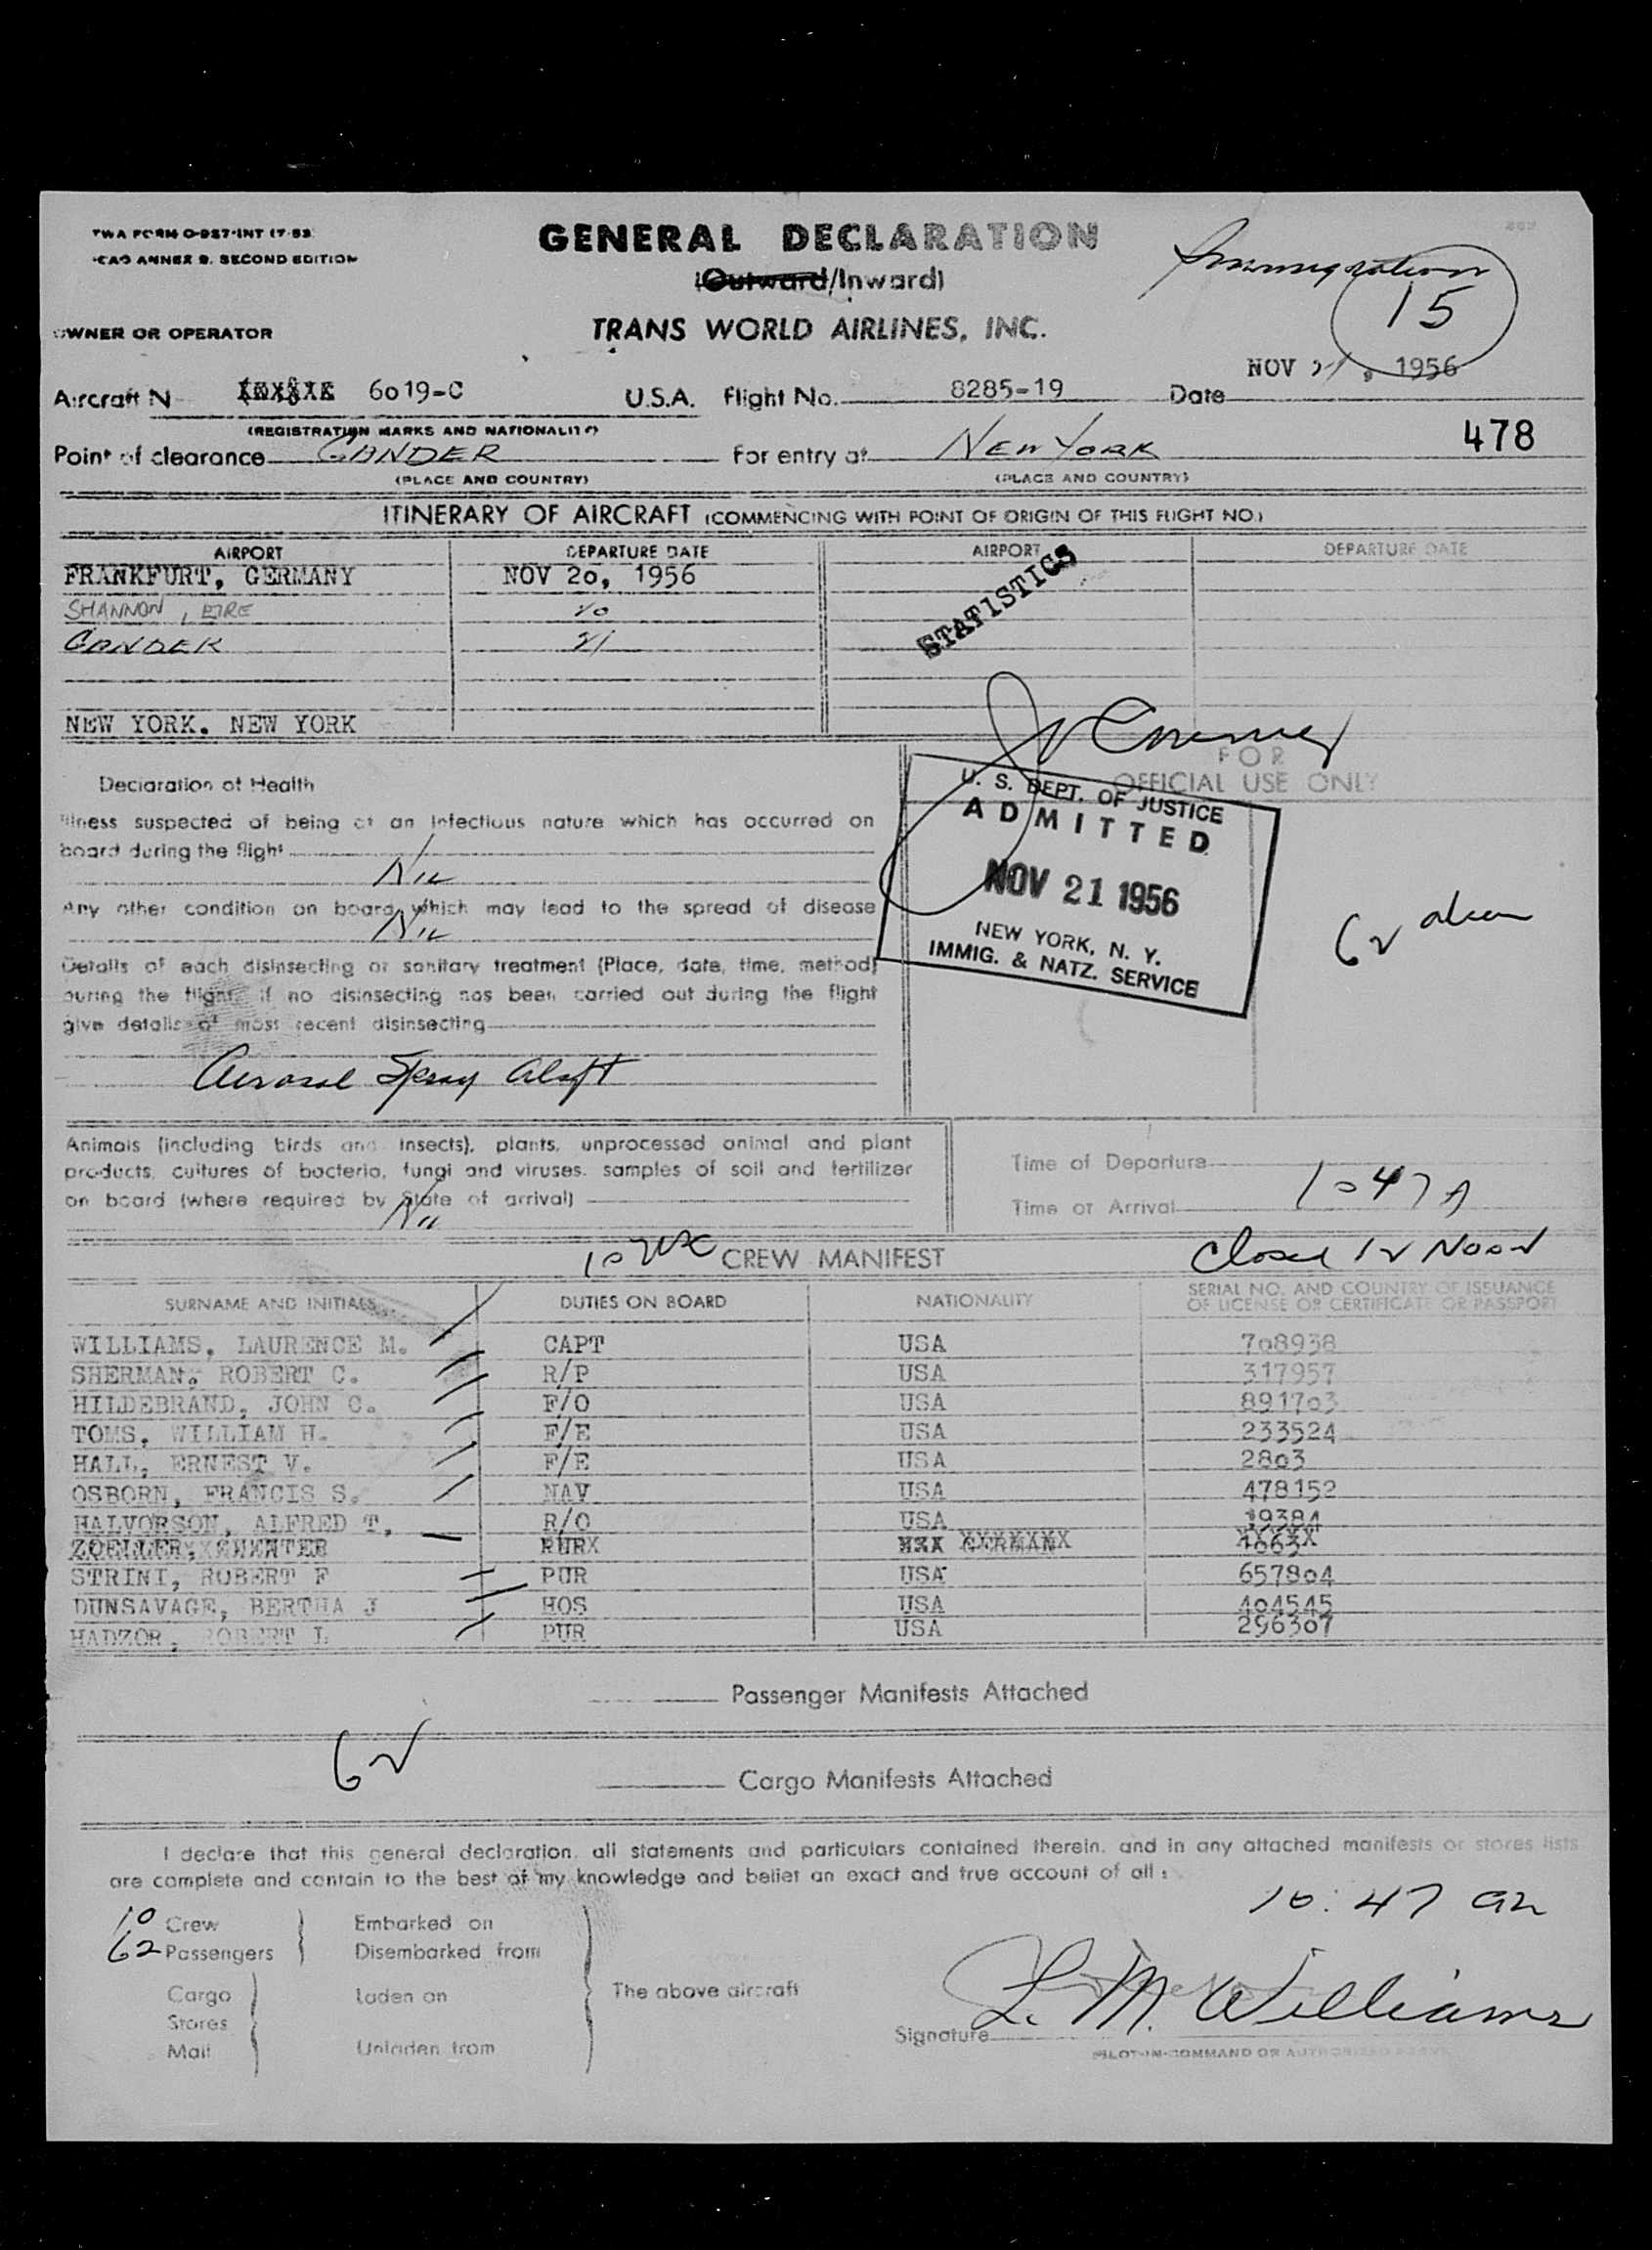 TWA FORM O-987-INT (7-53)
ICAO ANNEX 9, SECOND EDITION
GENERAL DECLARATION
(Outward/Inward)
Immigration
15
OWNER OR OPERATOR
TRANS WORLD AIRLINES, INC.
Aircraft N 6019-C U.S.A. Flight No. 8285-19 Date NOV 21, 1956
(REGISTRATION MARKS AND NATIONALITY)
478
Point of clearance GANDER For entry at NEW YORK
(PLACE AND COUNTRY) (PLACE AND COUNTRY)
ITINERARY OF AIRCRAFT (COMMENCING WITH POINT OF ORIGIN OF THIS FLIGHT NO.)
AIRPORT DEPARTURE DATE AIRPORT DEPARTURE DATE
FRANKFURT, GERMANY NOV 20, 1956
STATISTICS
SHANNON, EIRE 20
GANDER 21
NEW YORK. NEW YORK
FOR
OFFICIAL USE ONLY
Declaration of Health
Illness suspected of being of an infectious nature which has occurred on
board during the flight
Nil
Any other condition on board which may lead to the spread of disease
Nil
Details of each disinsecting or sanitary treatment (Place, date, time, method)
during the flight. If no disinsecting has been carried out during the flight
give details of most recent disinsecting
Aerosol Spray Aloft
U. S. DEPT. OF JUSTICE
ADMITTED
NOV 21 1956
NEW YORK, N. Y.
IMMIG. & NATZ. SERVICE
62
Animals (including birds and insects), plants, unprocessed animal and plant
products, cultures of bacteria, fungi and viruses, samples of soil and fertilizer
on board (where required by State of arrival)
Nil
Time of Departure
Time of Arrival 1047 A
10 CREW MANIFEST
Closed 12 Noon
SURNAME AND INITIALS DUTIES ON BOARD NATIONALITY SERIAL NO. AND COUNTRY OF ISSUANCE
OF LICENSE OR CERTIFICATE OR PASSPORT
WILLIAMS, LAURENCE M. CAPT USA 708938
SHERMAN, ROBERT C. R/P USA 317957
HILDEBRAND, JOHN C. F/O USA 891703
TOMS, WILLIAM H. F/E USA 233524
HALL, ERNEST V. F/E USA 2803
OSBORN, FRANCIS S. NAV USA 478152
HALVORSON, ALFRED T. R/O USA 19384
ZOELLER, GERMAN
STRINI, ROBERT F PUR USA 657804
DUNSAVAGE, BERTHA J HOS USA 404545
HADZOR, ROBERT L PUR USA 296307
Passenger Manifests Attached
62
Cargo Manifests Attached
I declare that this general declaration, all statements and particulars contained therein, and in any attached manifests or stores lists
are complete and contain to the best of my knowledge and belief an exact and true account of all:
10:47 am
10 Crew Embarked on
62 Passengers Disembarked from
Cargo Laden on The above aircraft
Stores
Mail Unladen from
Signature L. M. Williams
PILOT-IN-COMMAND OR AUTHORIZED AGENT